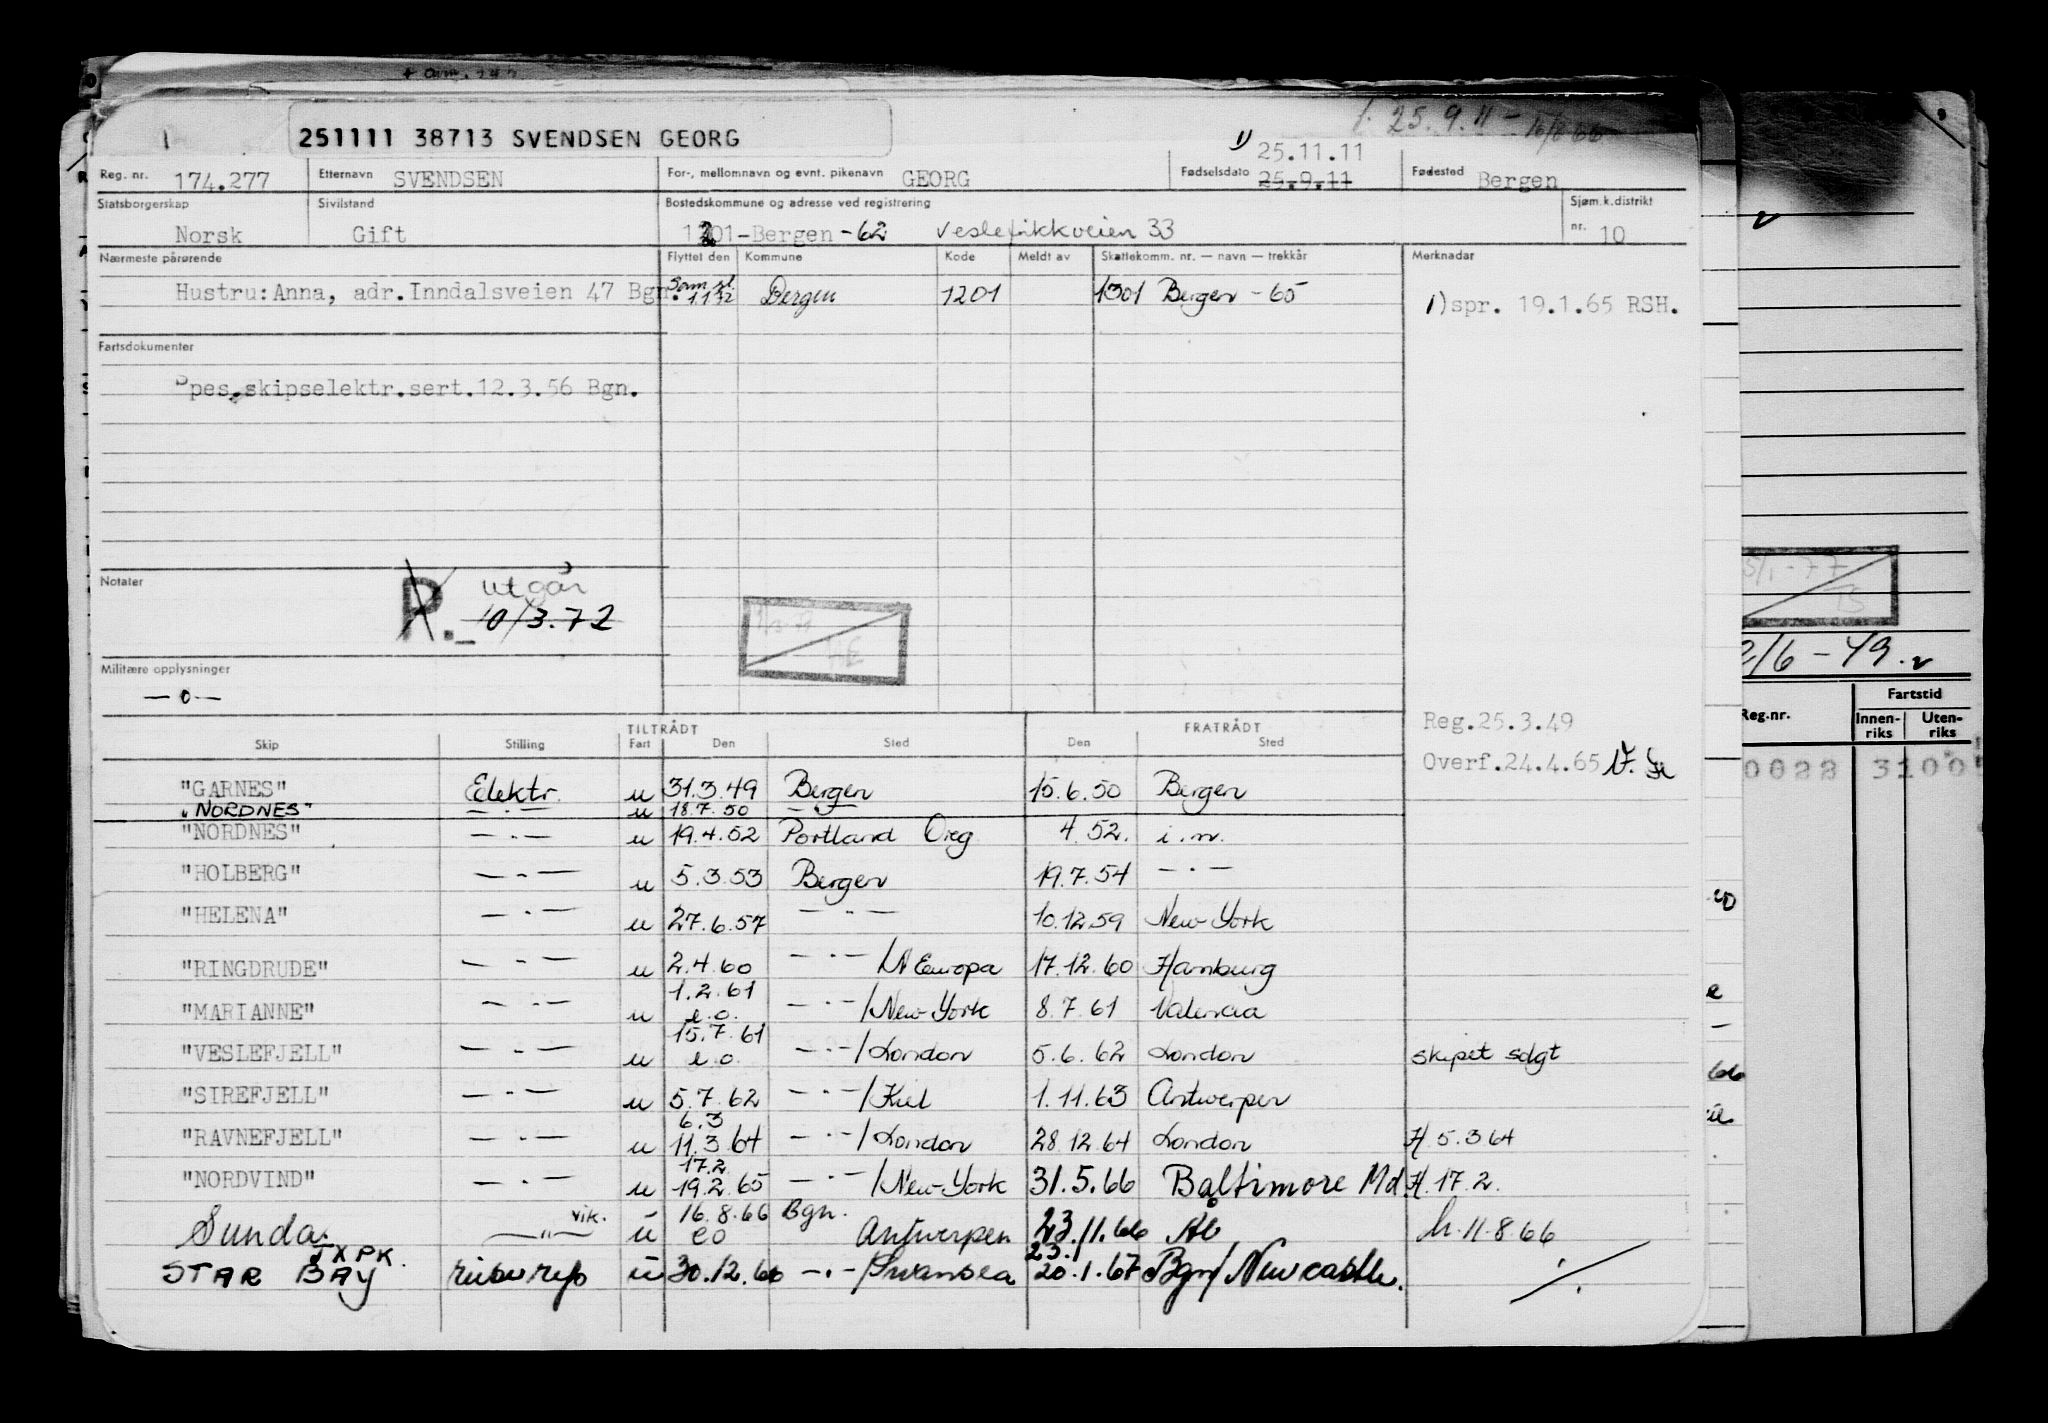 251111 38713 SVENDSEN GEORG
25.9.11
1) 25.11.11
Reg. nr. 174.277 Etternavn SVENDSEN For-, mellomnavn og evnt. pikenavn GEORG Fødselsdato 25.9.11 Fødested Bergen
Statsborgerskap Sivilstand Bostedskommune og adresse ved registrering Sjøm.k.distrikt
Norsk Gift 1201-Bergen -62 Veslefrikkveien 33 nr. 10
Nærmeste pårørende Flyttet den Kommune Kode Meldt av Skattekomm. nr. — navn — trekkår Merknader
Hustru:Anna, adr.Inndalsveien 47 Bgn. 1.1.72 Bergen 1201 1301 Bergen -65 1)spr. 19.1.65 RSH.
Fartsdokumenter
Spes.skipselektr.sert.12.3.56 Bgn.
Notater R. utgår
10/3.72
2/6-49.
Militære opplysninger
—o—
Reg.nr. Fartstid
Innen-riks Uten-riks
Reg.25.3.49
TILTRÅDT FRATRÅDT
Skip Stilling Fart Den Sted Den Sted
Overf.24.4.65
"GARNES" Elektr. u 31.3.49 Bergen 15.6.50 Bergen
"NORDNES" —.— u 18.7.50 —.—
"NORDNES" —.— u 19.4.52 Portland Oreg 4.52. i.m.
"HOLBERG" —.— u 5.3.53 Bergen 19.7.54 —.—
"HELENA" —.— u 27.6.57 —.— 10.12.59 New-York
"RINGDRUDE" —.— u 2.4.60 —.—/N Europa 17.12.60 Hamburg
"MARIANNE" —.— u 1.2.61 e.o. —.—/New-York 8.7.61 Valencia
"VESLEFJELL" —.— u 15.7.61 e.o. —.—/London 5.6.62 London skipet solgt
"SIREFJELL" —.— u 5.7.62 —.—/Kiel 1.11.63 Antwerpen
"RAVNEFJELL" —.— u 6.3 11.3.64 —.—/London 28.12.64 London H.5.3.64
"NORDVIND" —.— u 17.2. 19.2.65 —.—/New-York 31.5.66 Baltimore Md. H.17.2.
Sunda. —"— vik. u 16.8.66 eo Bgn. Antwerpen 23.11.66 h.11.8.66
JXPK.
STAR BAY u 30.12.66 —.—/Swansea 23.1 20.1.67 Bgn/Newcastle.